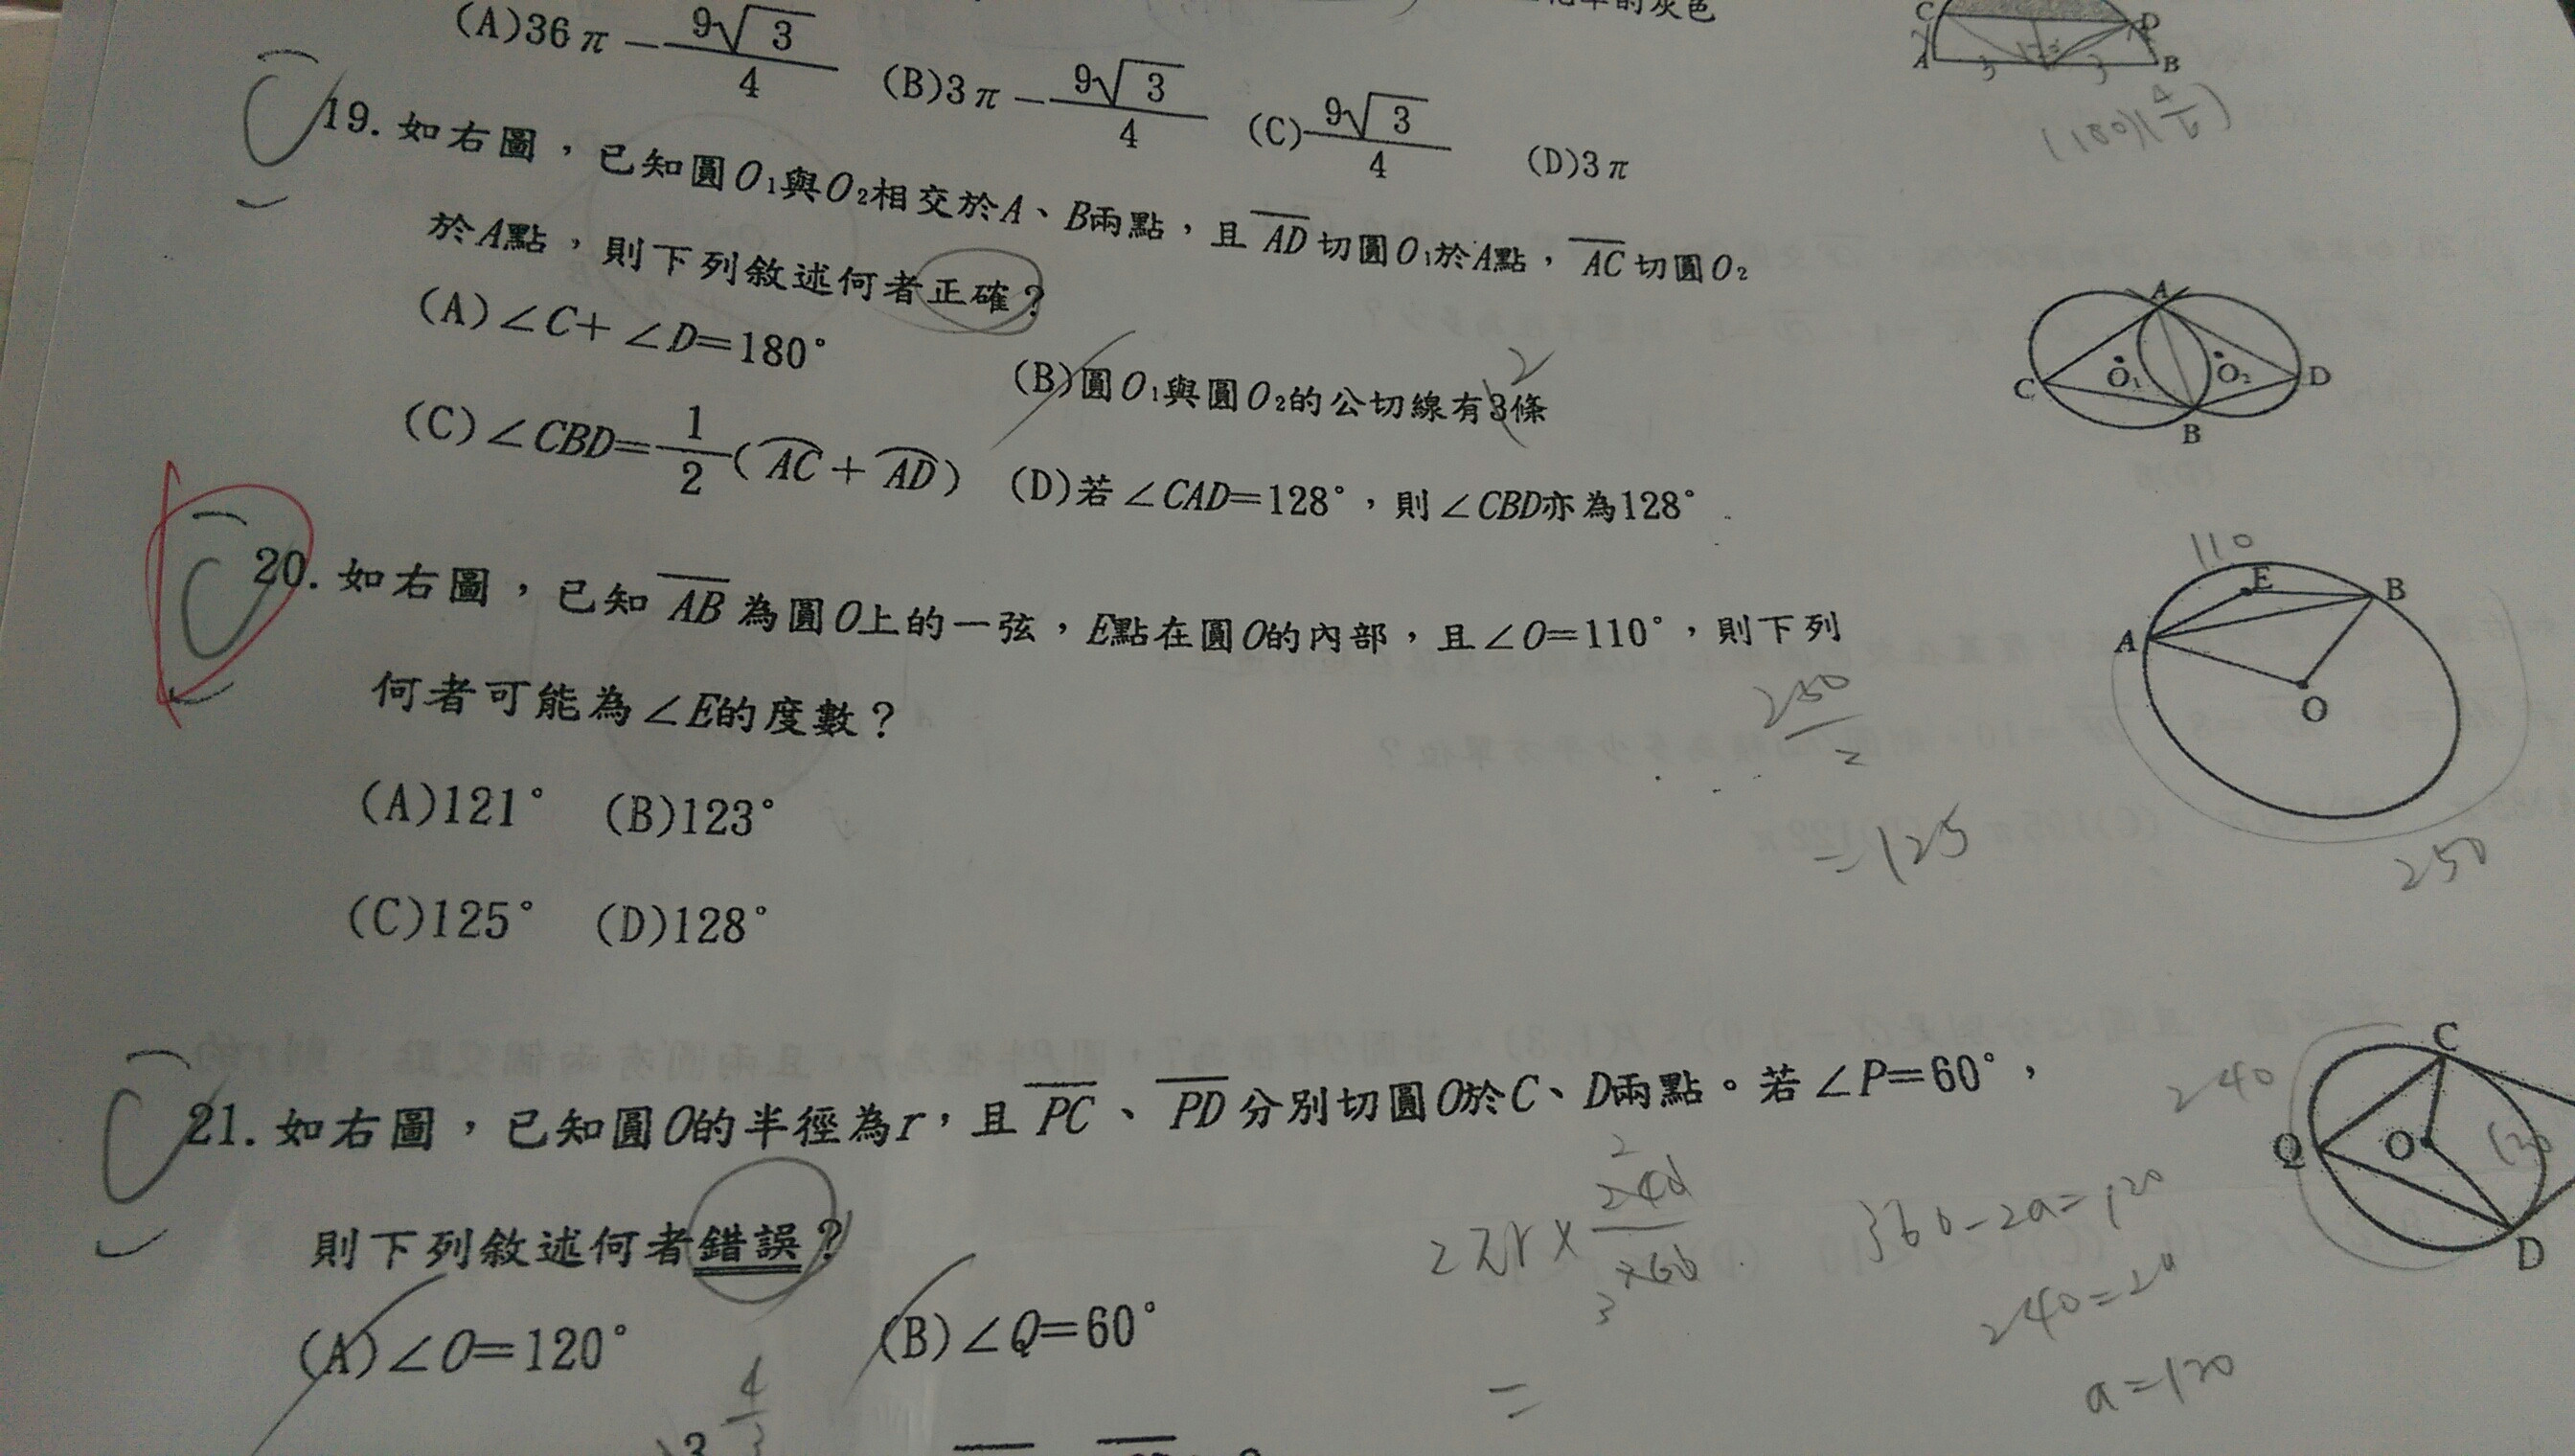 的灰色
C D
A 3 3 B
(A)36π－9√3/4 (B)3π－9√3/4 (C)9√3/4 (D)3π
(180)(4/6)
19. 如右圖，已知圓O₁與O₂相交於A、B兩點，且AD切圓O₁於A點，AC切圓O₂
於A點，則下列敘述何者正確？
(A)∠C＋∠D＝180°
(B)圓O₁與圓O₂的公切線有3條
2
(C)∠CBD＝1/2(AC＋AD)
(D)若∠CAD＝128°，則∠CBD亦為128°
A
C O₁ O₂ D
B
20. 如右圖，已知AB為圓O上的一弦，E點在圓O的內部，且∠O＝110°，則下列
何者可能為∠E的度數？
(A)121° (B)123°
(C)125° (D)128°
250/2
=125
110
E B
A
O
250
21. 如右圖，已知圓O的半徑為r，且PC、PD分別切圓O於C、D兩點。若∠P＝60°，
則下列敘述何者錯誤？
(A)∠O＝120°
(B)∠Q＝60°
4/3
2πr×240/360
2
3
=
360-2a=120
240=2a
a=120
240
C
Q O 120
D